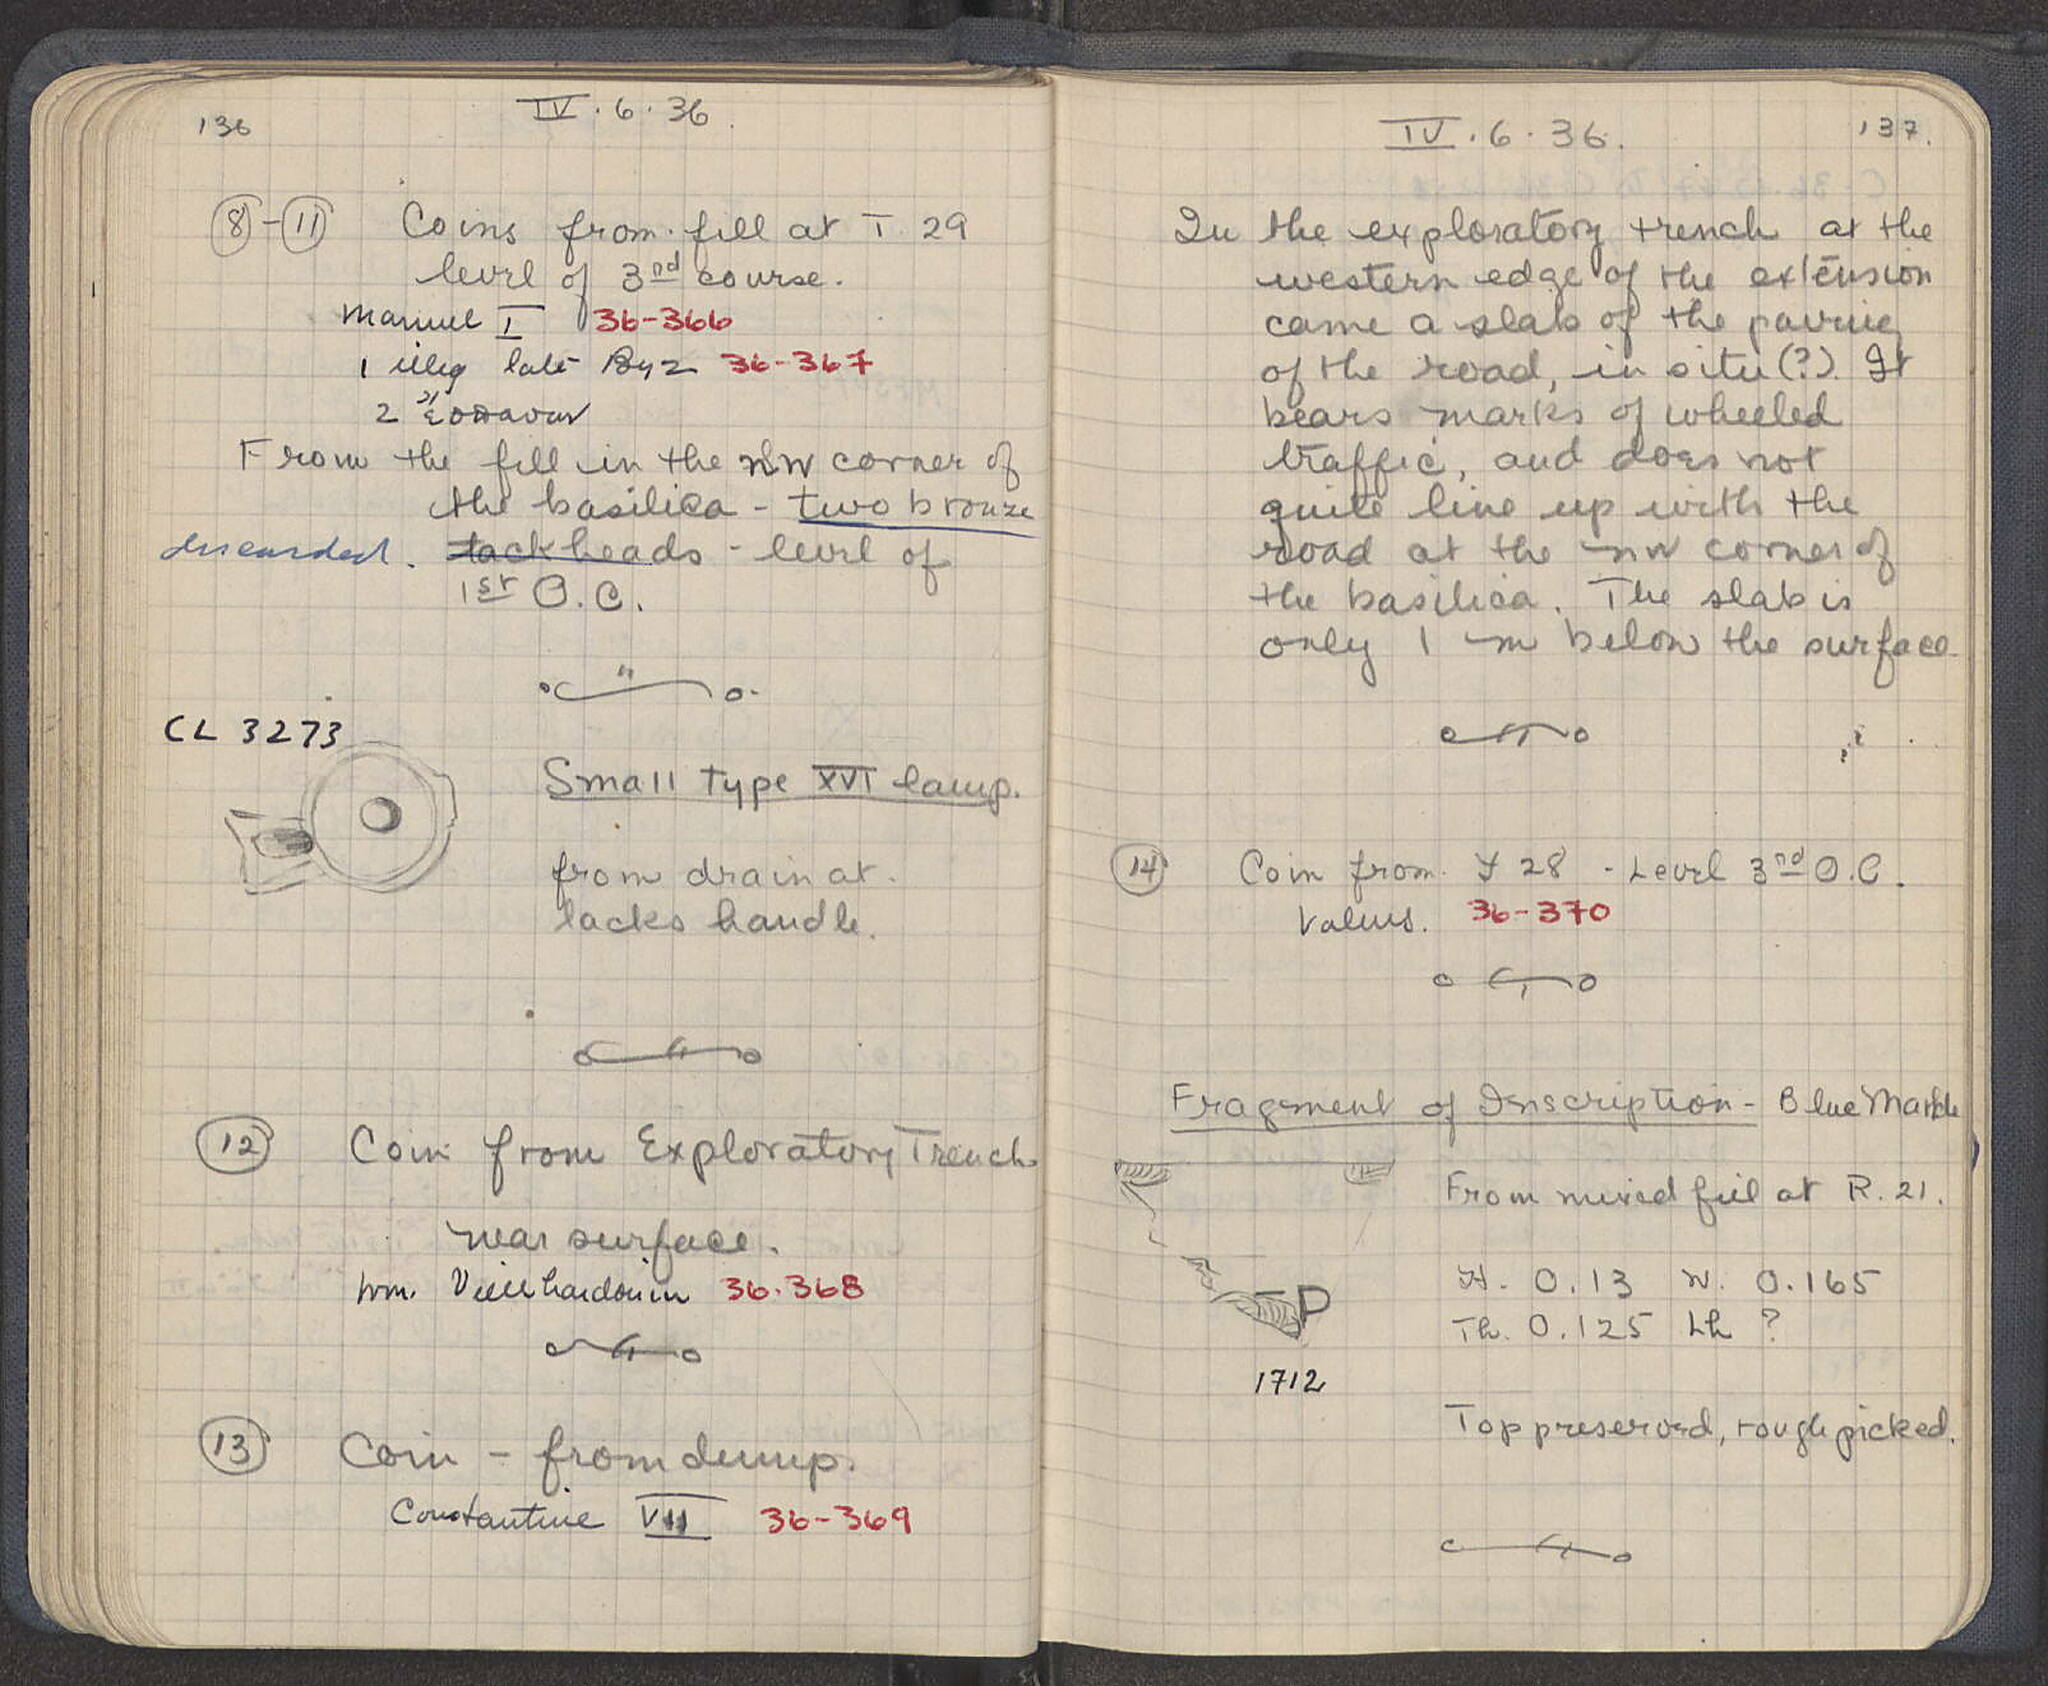 136
IV . 6 . 36 .
8 - 11 Coins from fill at T 29
level of 3nd course.
Manuel I 36-366
1 illeg late Byz 36-367
2
From the fill in the NW corner of
the basilica - two bronze
discarded. tackheads - level of
1st O.C.
CL 3273
Small type XVI lamp.
from drain at.
lacks handle.
12 Coin from Exploratory Trench
near surface.
Wm. Villehardouin 36.368
13 Coin - from dump.
Constantine VII 36-369
IV . 6 . 36.
137.
In the exploratory trench at the
western edge of the extension
came a slab of the paving
of the road, in situ (?). It
bears marks of wheeled
traffic, and does not
quite line up with the
road at the NW corner of
the basilica. The slab is
only 1 m below the surface
14 Coin from 28 - Level 3nd O.C.
Valens. 36-370
Fragment of Inscription - Blue Marble
From mixed fill at R. 21.
P
H. 0.13 W. 0.165
Th. 0.125 Lh ?
1712
Top preserved, rough picked.